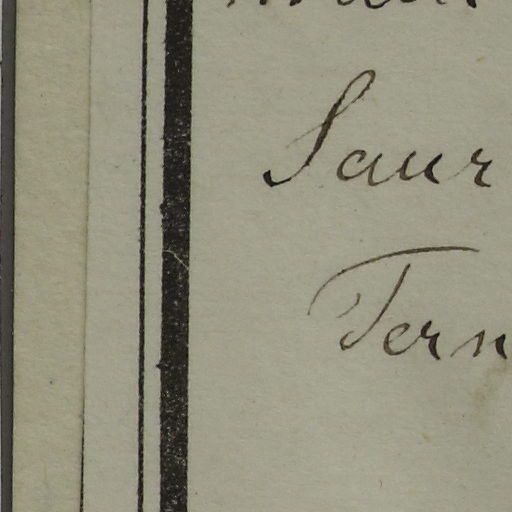 Saur
Tern